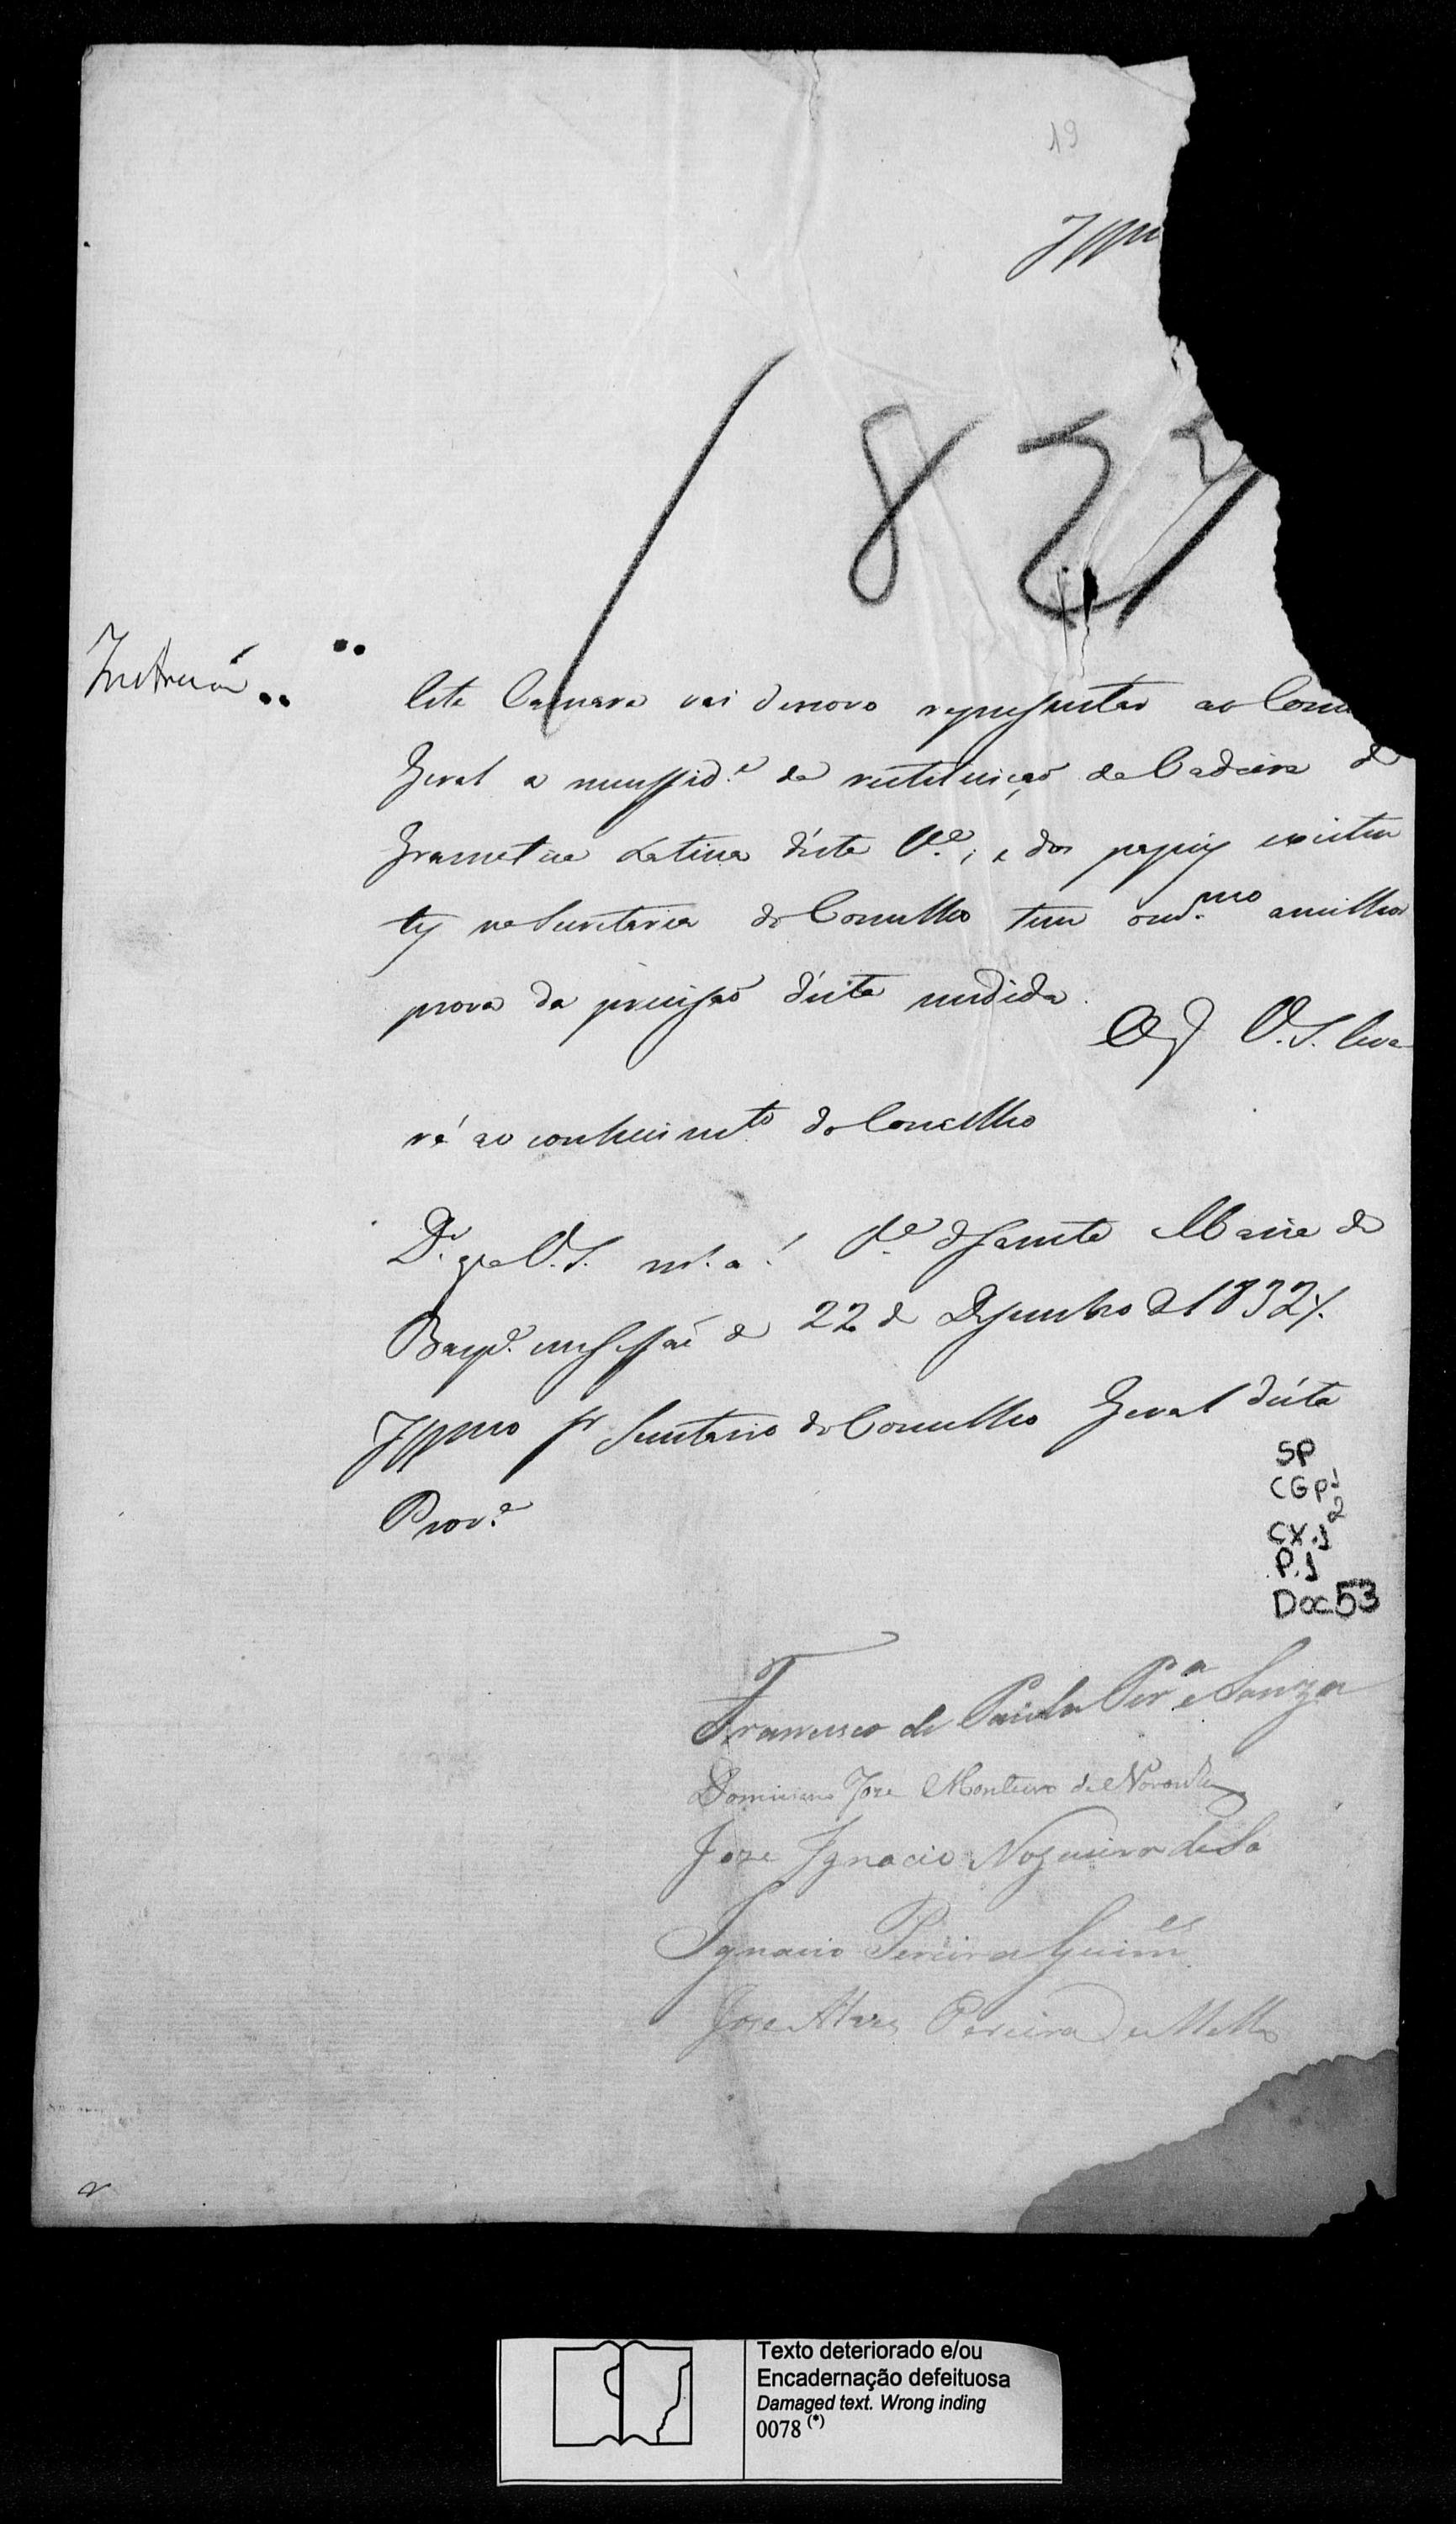 19
Illm
1832
Instrução
Esta Camara vai denovo representar ao Cons
Geral a necessid.e da restituição da Cadeira de
Gramatica Latina d'esta V.a; e dos papeis existen
tes na Secretaria do Conselho tem o mesmo amilhor
prova da precisão d'esta medida.
V.S. leva
rá ao conhecim.to do Conselho
D.s g.e a V.S. m.s a.s V.a de Santa Maria de
Baep.di em Sessão de 22 de Dezembro de 1832
Illmo Sr Secretario do Conselho Geral d'esta
Prov.a
SP
CGP1
CX.12
P.1
Doc53
Francisco de Paula Per.a e Souza
Domiciano Joze Monteiro de Noronha
Joze Ignacio Nogueira de Sa
Ignacio Pereira Guim.es
Jose Alves Pereira de Mello
Texto deteriorado e/ou
Encadernação defeituosa
Damaged text. Wrong inding
0078 (*)